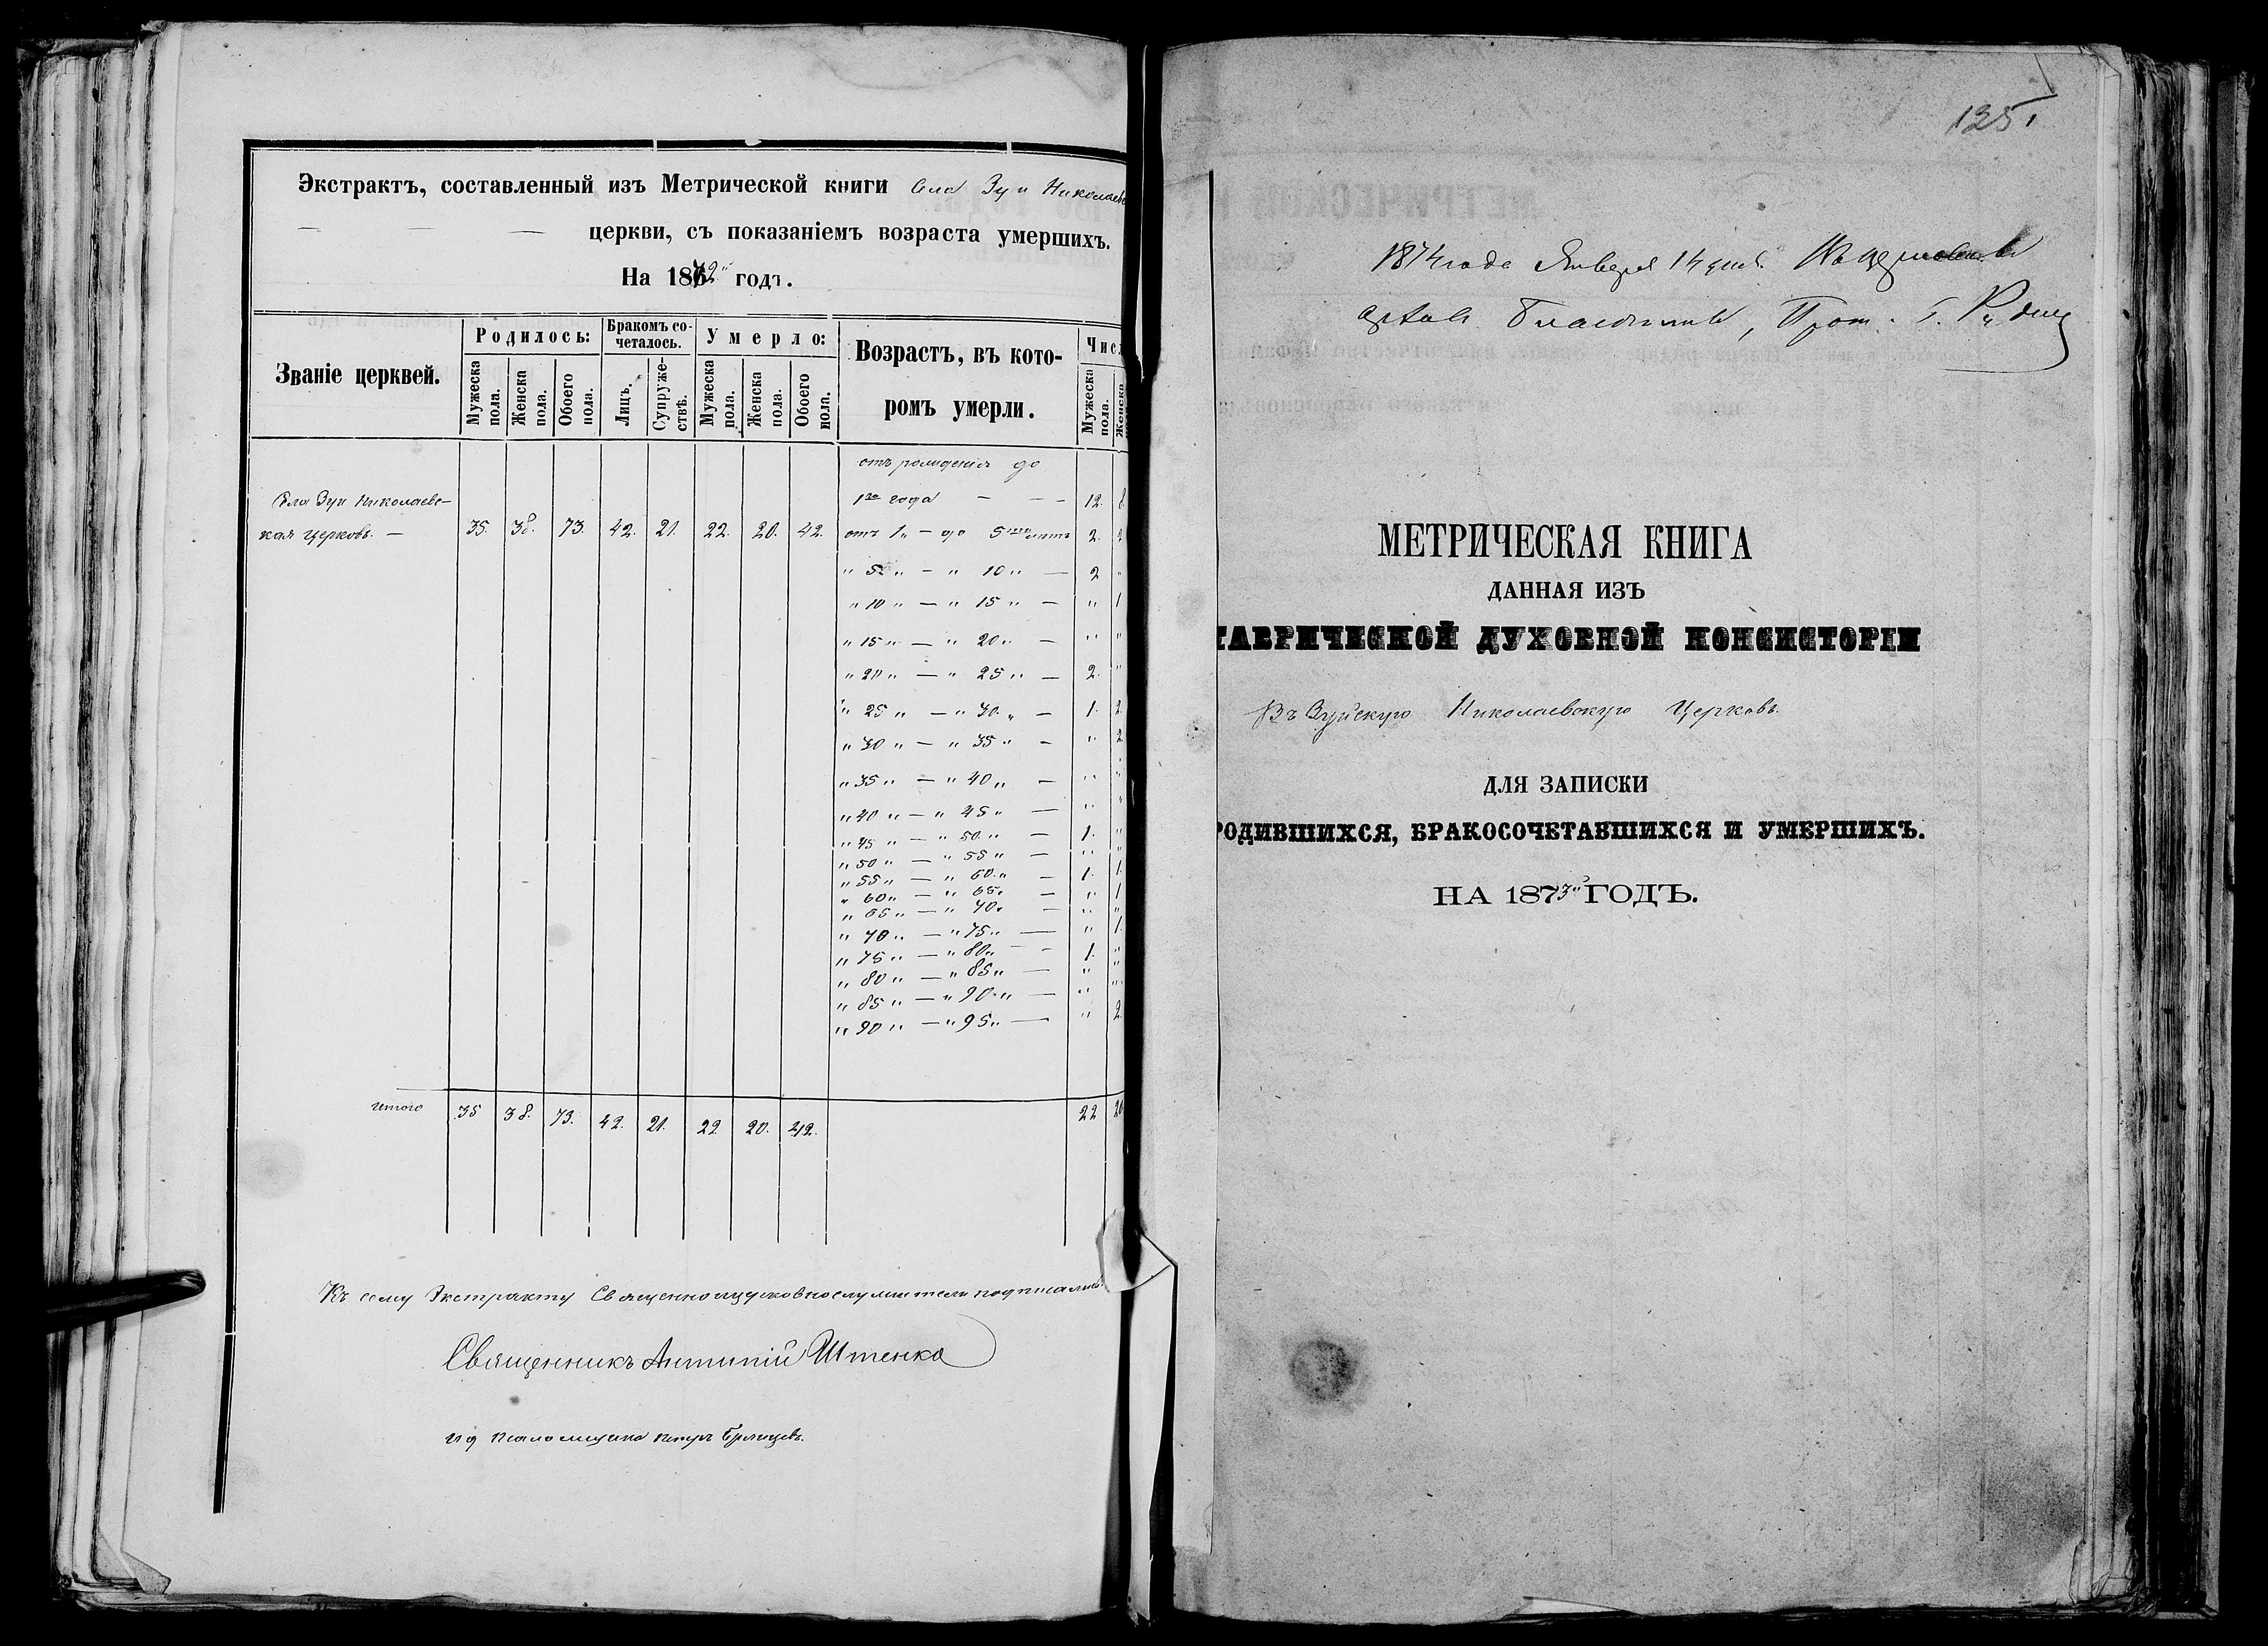 Экстрактъ, составленный изъ Метрической книги села Зуи Николаев
церкви, съ показаніемъ возраста умершихъ.
На 1872 годъ.
Званіе церквей.
Родилось:
Бракомъ сочеталось.
Умерло:
Возрастъ, въ которомъ умерли.
Числ
Мужеска пола.
Женска пола.
Обоего пола.
Лицъ.
Супружествъ.
Мужеска пола.
Женска пола.
Обоего пола.
Мужеска пола.
Женска
отъ рожденія до
Села Зуи Николаевс-
1го года — — — 12. 8
кая церковь. — 35. 38. 73. 42. 21. 22. 20. 42. отъ 1 „ — до 5 лѣтъ 2. 2
„ 5 „ — „ 10 „ — 2 „
„ 10 „ — „ 15 „ — „ 1
„ 15 „ — „ 20 „ — „ „
„ 20 „ — „ 25 „ — 2. „
„ 25 „ — „ 30 „ — 1. 2
„ 30 „ — „ 35 „ — „ 2
„ 35 „ — „ 40 „ — „ „
„ 40 „ — „ 45 „ — „ „
„ 45 „ — „ 50 „ — 1. „
„ 50 „ — „ 55 „ — „ „
„ 55 „ — „ 60 „ — 1. 1.
„ 60 „ — „ 65 „ — „ 1
„ 65 „ — „ 70 „ — „ „
„ 70 „ — „ 75 „ — „ 1.
„ 75 „ — „ 80 „ — 1. „
„ 80 „ — „ 85 „ — „ „
„ 85 „ — „ 90 „ — „ „
„ 90 „ — „ 95 „ — „ 2.
итого 35 38. 73. 42. 21. 22 20. 42. 22 20
Къ сему Экстракту Священноцерковнослужители подписались
Священникъ Антипій Штенко
ид псаломщика Петръ
125
1874 года Января 14 дня.
Прот.
МЕТРИЧЕСКАЯ КНИГА
ДАННАЯ ИЗЪ
ТАВРИЧЕСКОЙ ДУХОВНОЙ КОНСИСТОРІИ
Въ Зуйскую Николаевскую Церковь.
ДЛЯ ЗАПИСКИ
РОДИВШИХСЯ, БРАКОСОЧЕТАВШИХСЯ И УМЕРШИХЪ.
НА 1873 ГОДЪ.